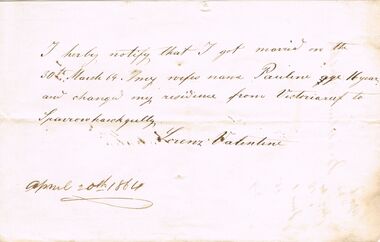 I herby notify that I got maried on the
30th March 64. I my wifes name Pauline age 16 year
and change my residence from Victoriareef to
Sparrowhawkgully
Lorenz Valentine
April 20th 1864